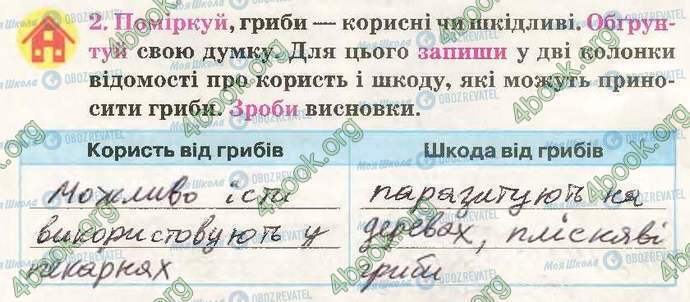 2. Поміркуй, гриби — корисні чи шкідливі. Обґрун-
туй свою думку. Для цього запиши у дві колонки
відомості про користь і шкоду, які можуть прино-
сити гриби. Зроби висновки.
Користь від грибів Шкода від грибів
Можливо їсти паразитують на
використовують у деревах, пліскяві
пекарнях гриби